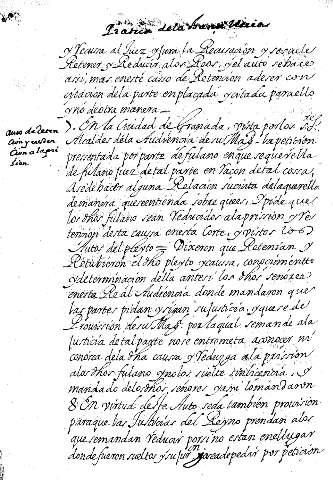 Y Recusa al Juez y Jura la Recusacion y se suele
Retener, y Reducir, a los Reos, y el auto se hace
assi, mas en este caso de Retencion a de ser con
citacion de la parte emplaçada, y citada para ello
y no de otra manera
Auto de Reten
cion y reduc
cion a la pri
sion
En la Ciudad de Granada, vista por los SS.
Alcaldes de la Audiencia de su Mag.d la peticion
presentada por parte de fulano en que se querella
de fulano Juez de tal parte en raçon de tal cosa,
Ase de hacer alguna Relacion sucinta de la querella
de manera que se entienda sobre que es, I pide que
los dhos fulano sean reducidos a la prission, y re
tencion desta causa en esta Corte, y vistos los
Autos del pleyto = Dixeron que Retenian y
Retubieron el dho pleyto y causa, conocimiento
y determinacion della antes los dhos señores
en esta Real Audiencia donde mandaron que
las partes pidan y sigan su Justicia, y que se de
Provision de su Mag.d por la qual se mande a la
Justicia de tal parte no se entrometa a conocer ni
conozca de la dha causa y reduzga a la prission
a los dhos fulano, y no los suelte sin licencia y
mandado de los dhos señores y assi lo mandaron
En virtud deste Auto se da tambien provision
para que las Justicias del Reyno prendan a los
que se mandan reducir por si no estan en el lugar
donde fueron sueltos y a de pedar por peticion